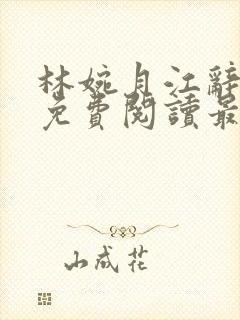 林婉月江辭
免費閱讀最
山成花